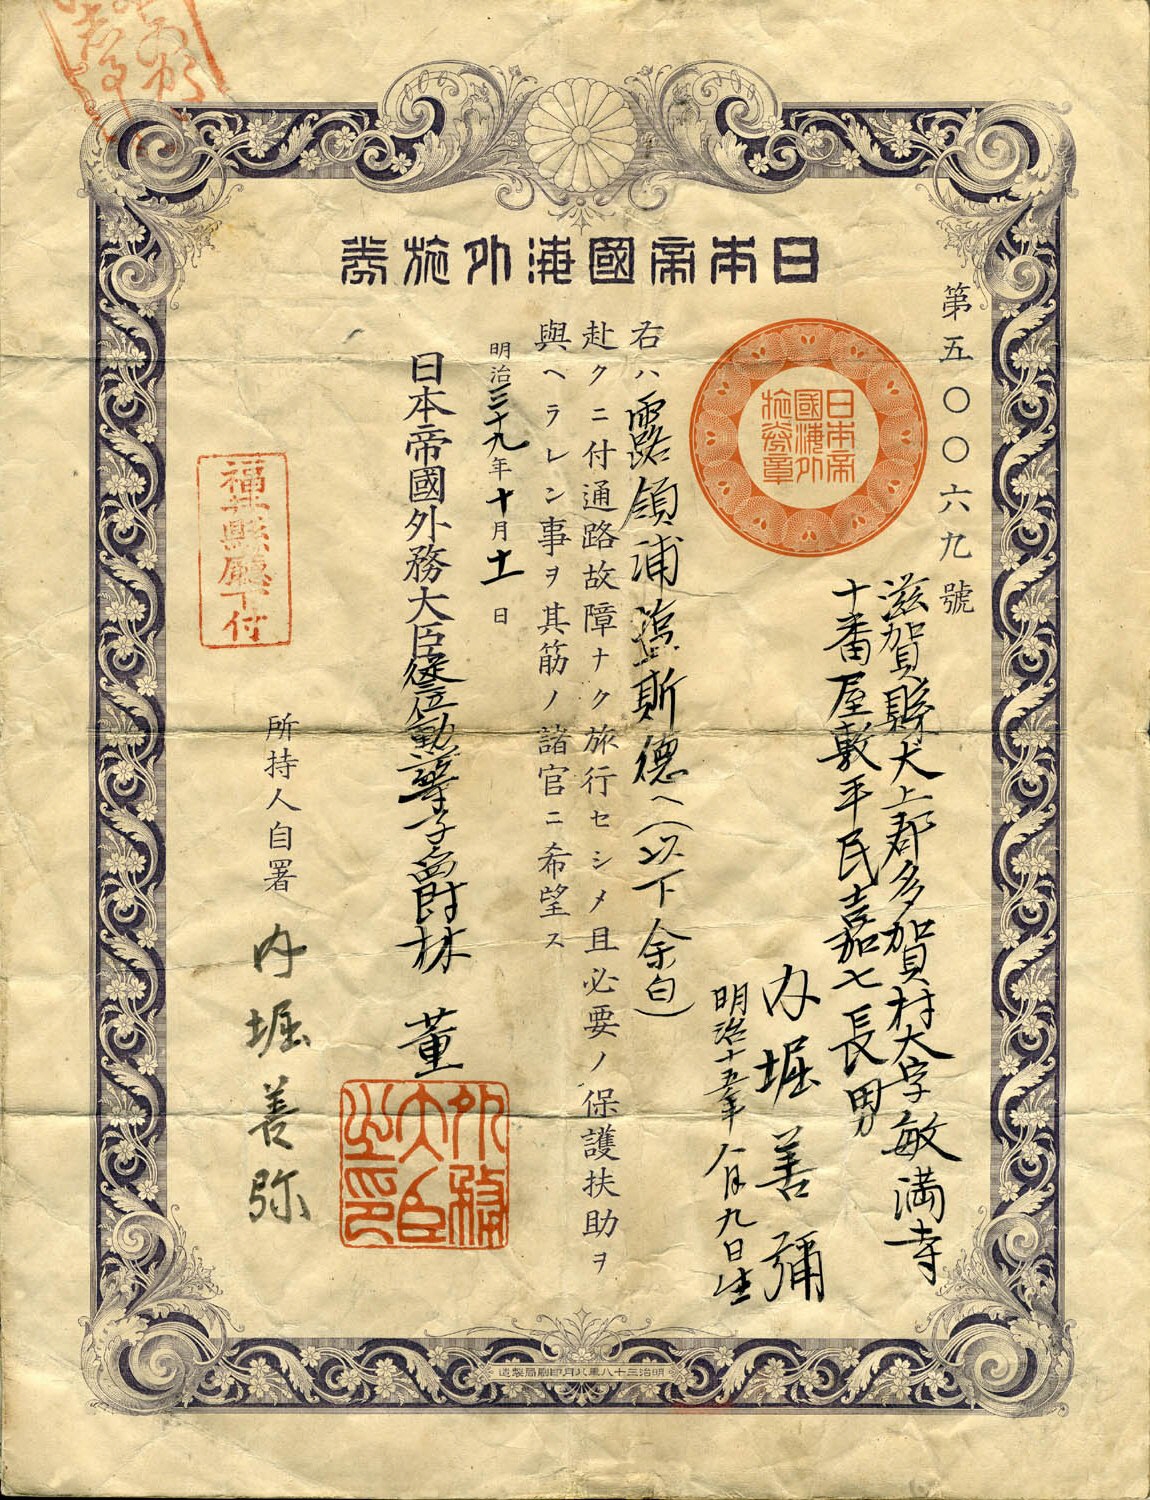 日本帝國海外旅券
第五〇〇六九號
日本帝
國海外
旅券章
滋賀縣犬上郡多賀村大字敏満寺
十番屋敷平民嘉七長男
内堀善彌
明治十五年八月九日生
右ハ露領浦塩斯德ヘ(以下余白)
赴クニ付通路故障ナク旅行セシメ且必要ノ保護扶助ヲ
與ヘラレン事ヲ其筋ノ諸官ニ希望ス
明治三十九年十月十一日
日本帝國外務大臣從二位勳一等子爵林董
外務
大臣
之印
所持人自署 内堀善弥
福井縣廳下付
明治三十八年八月印刷局製造